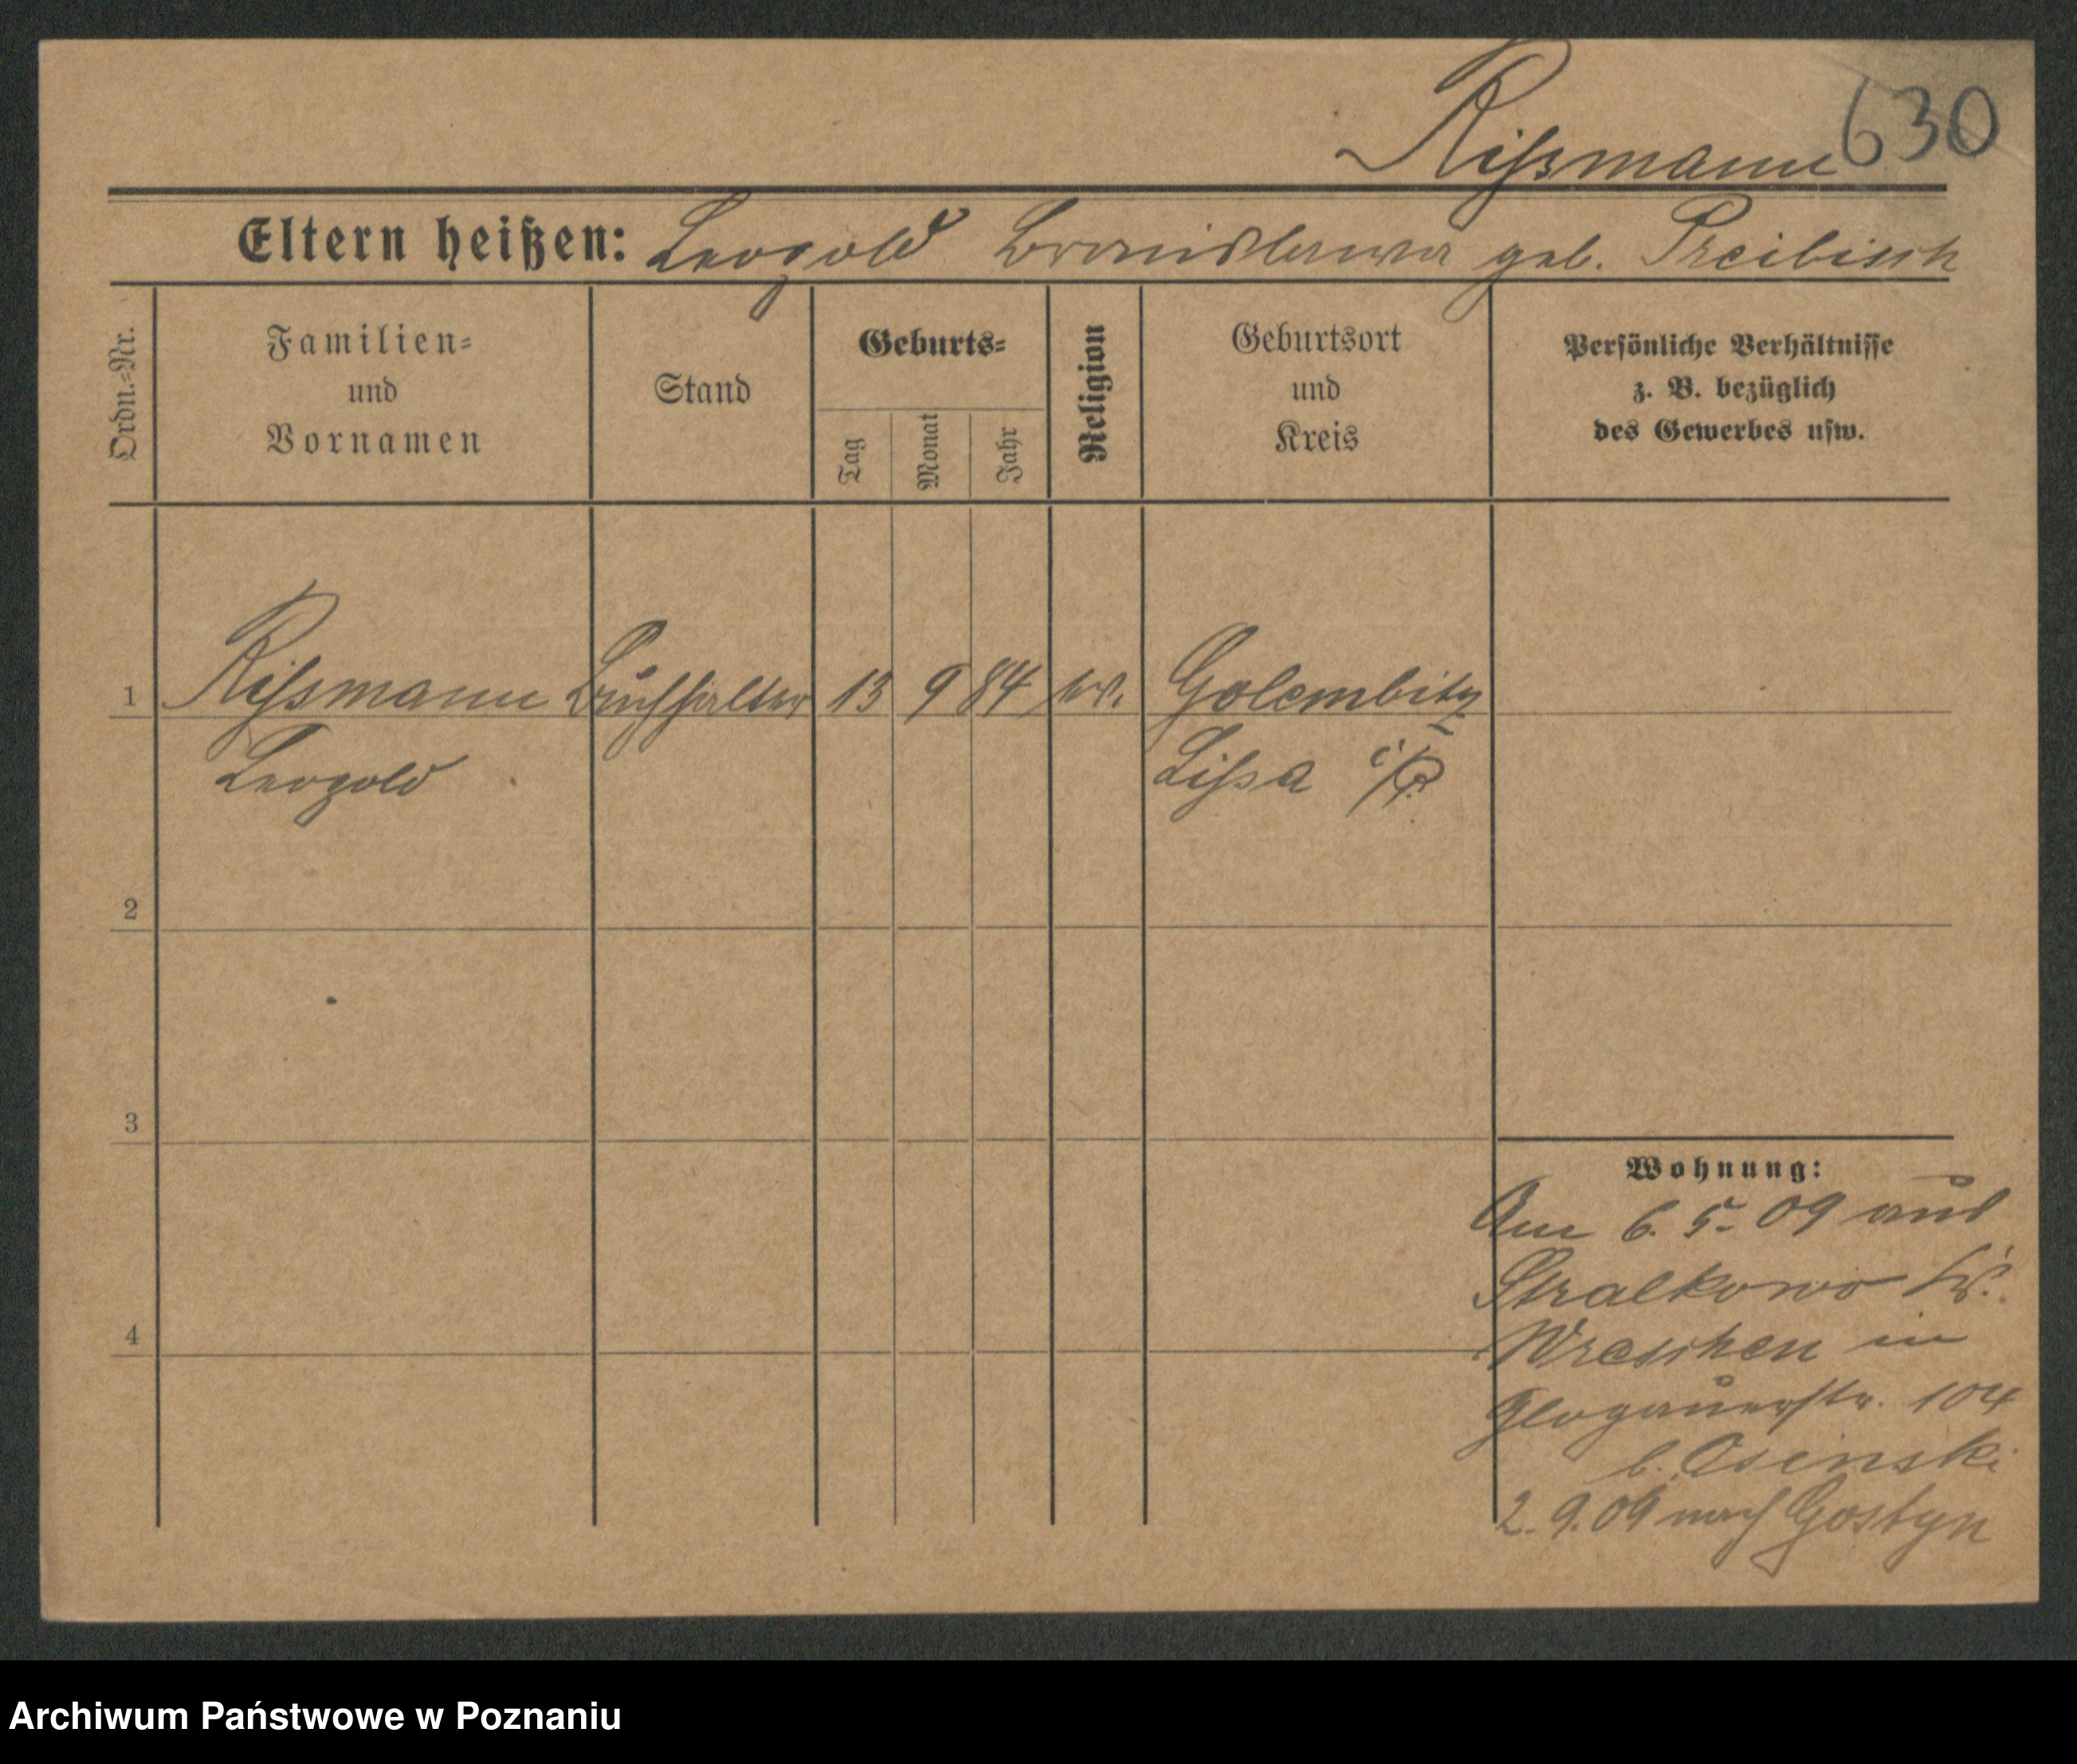 Rißmann 630
Eltern heißen: Leopold Bronislawa geb. Preibisch
Ordn.=Nr.
Familien=
und
Vornamen
Stand
Geburts=
Tag
Monat
Jahr
Religion
Geburtsort
und
Kreis
Persönliche Verhältnisse
z. B. bezüglich
des Gewerbes usw.
1 Rißmann Buchhalter 13 9 84 Golembitz
Leopold Lissa i/P.
2
3
4
Wohnung:
Am 6. 5. 09 aus
Stralkowo Kr.
Wreschen in
Glogauerstr. 104
b. Osinski
2. 9. 09 nach Gostyn
Archiwum Państwowe w Poznaniu